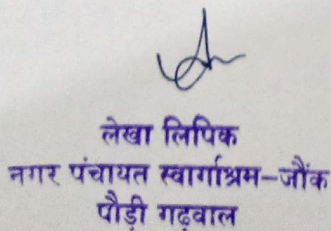 लेखा लिपिक
नगर पंचायत स्वार्गाश्रम-जौंक
पौड़ी गढवाल